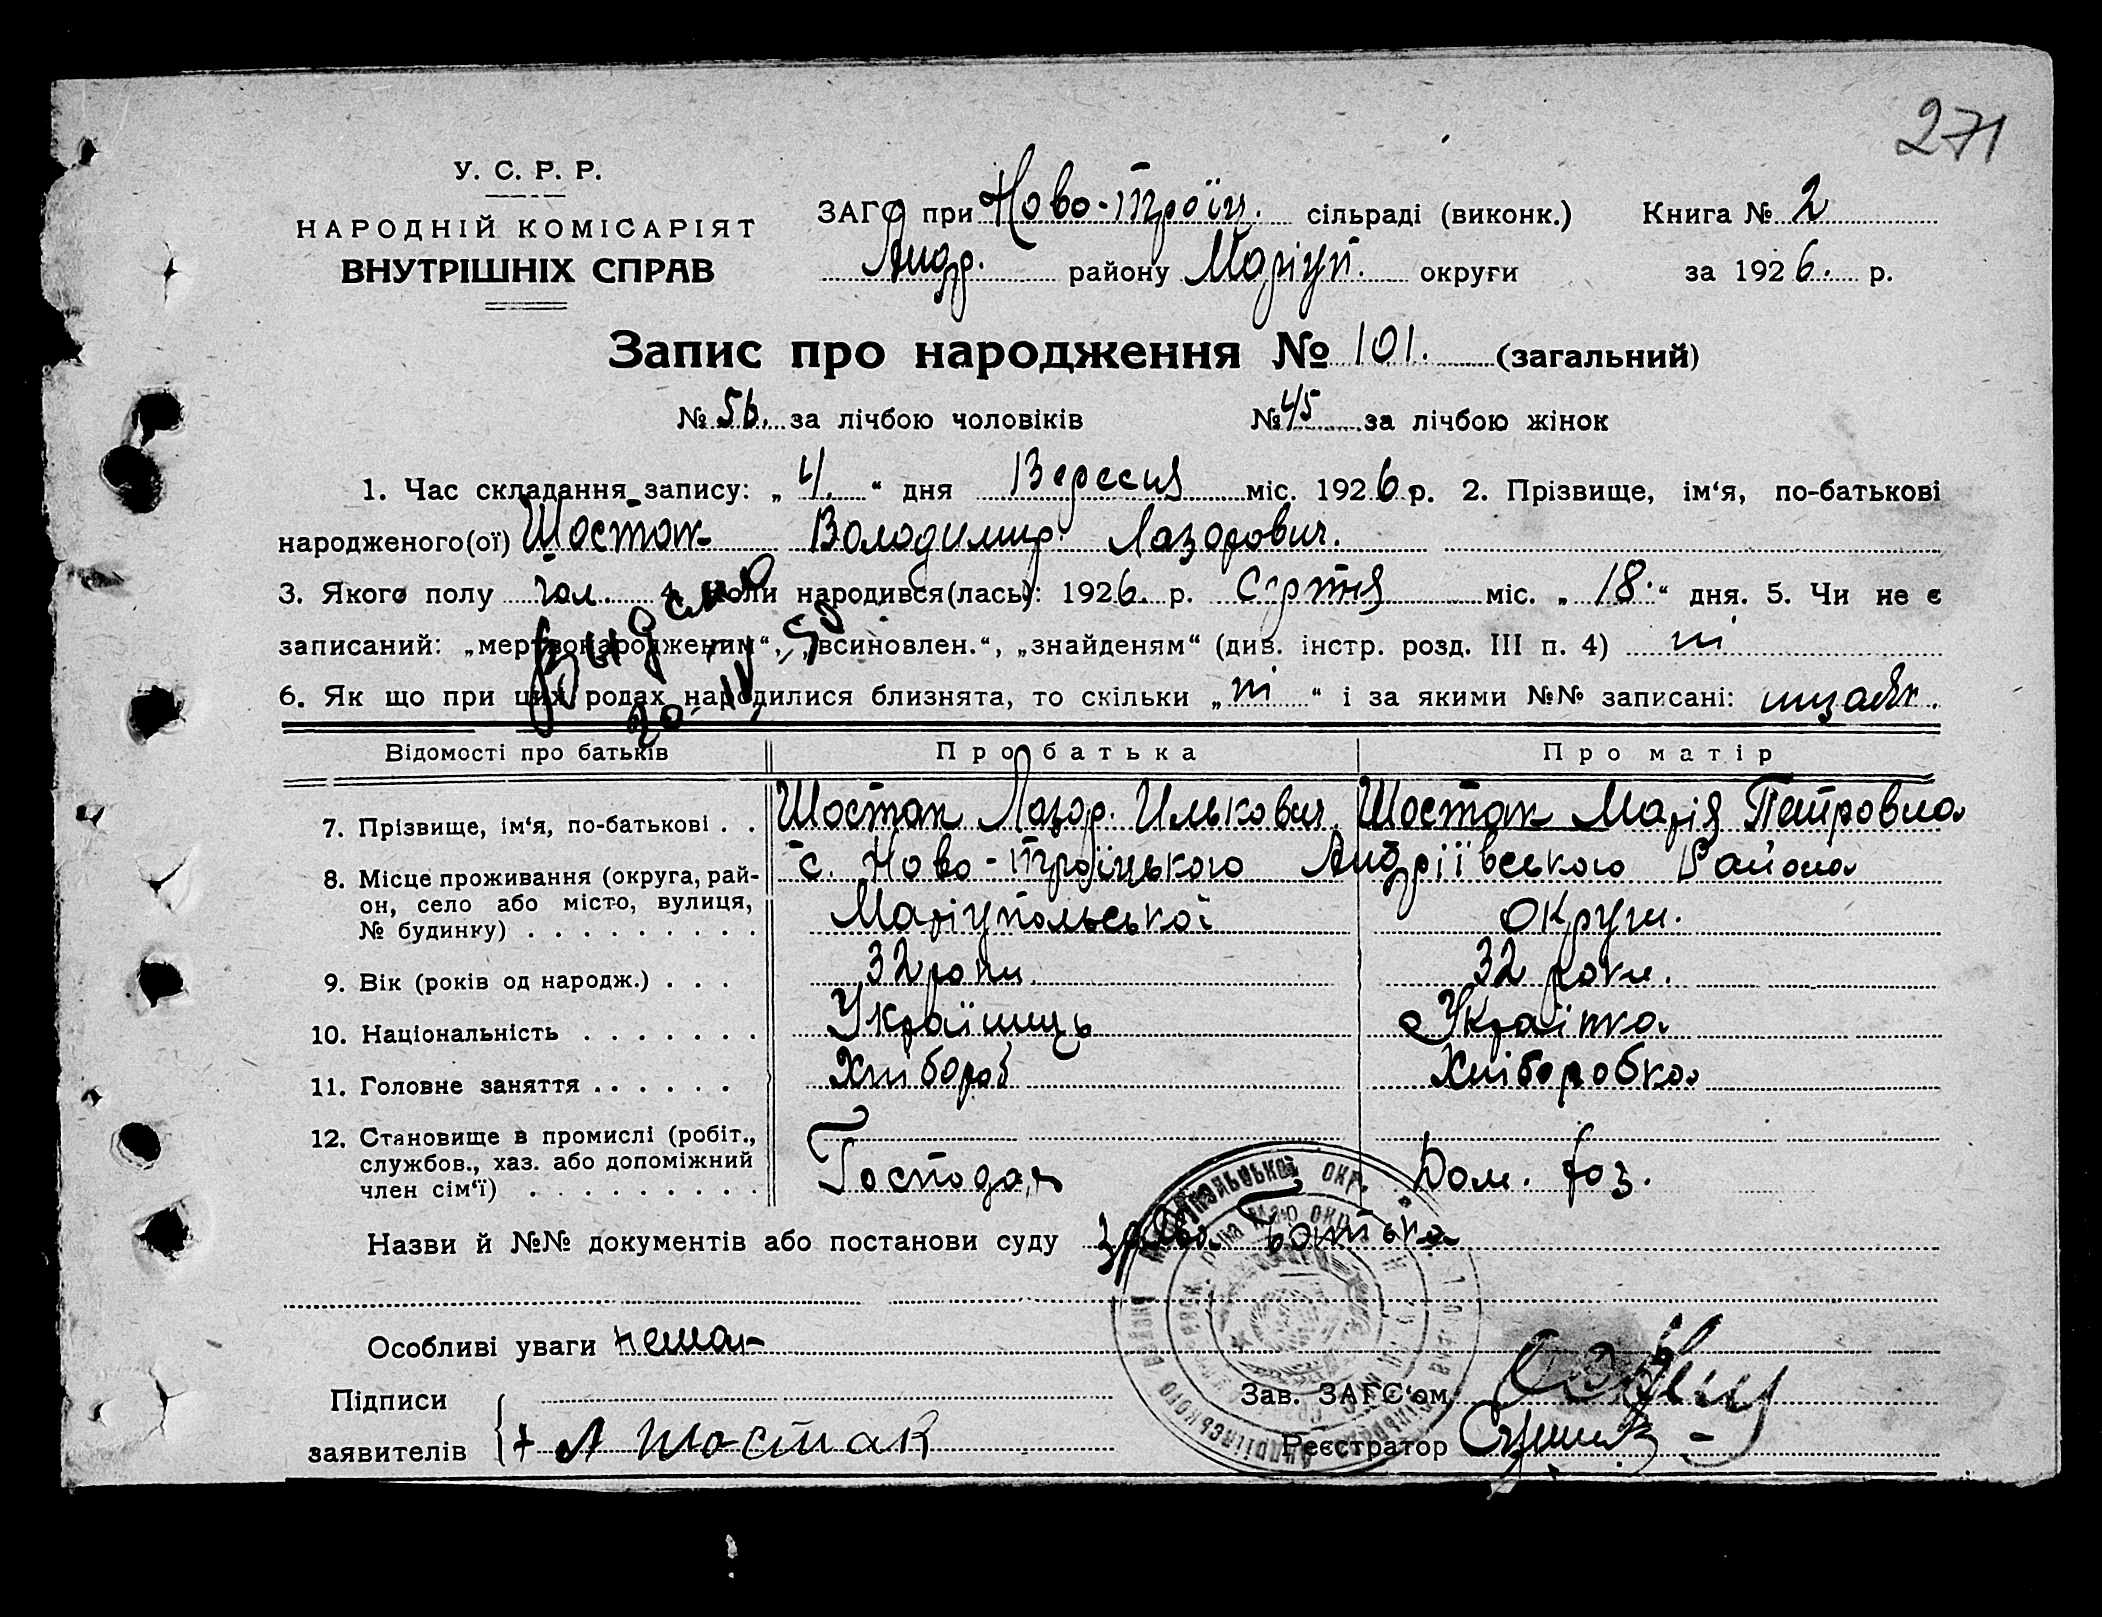 271
У. С. Р. Р.
НАРОДНІЙ КОМІСАРІЯТ
ВНУТРІШНІХ СПРАВ
ЗАГС при Ново-Троїц. сільраді (виконк.) Книга № 2
Андр. району Маріуп. округи за 1926. р.
Запис про народження № 101. (загальний)
№ 56. за лічбою чоловіків № 45 за лічбою жінок
1. Час складання запису: „ 4. “ дня Вересня міс. 1926 р. 2. Прізвище, ім‘я, по-батькові
народженого(ої) Шостак Володимир Лазорович.
3. Якого полу чол. 4. Коли народився(лась): 1926. р. Сертня міс. „ 18. “ дня. 5. Чи не є
записаний: „мертвонародженим“, „всиновлен.“, „знайденям“ (див. інстр. розд. III п. 4) ні
6. Як що при цих родах народилися близнята, то скільки „ ні “ і за якими №№ записані:
Відомості про батьків Про батька Про матір
7. Прізвище, ім‘я, по-батькові . . Шостак Лазор. Илькович Шостак Марія Петровна
8. Місце проживання (округа, рай-он, село або місто, вулиця, № будинку) с. Ново-Троїцького Андріївського Района
Маріупольської округи.
9. Вік (років од народж.) . . . 32 роки 32 роки.
10. Національність . . . . . . . Українець Українка
11. Головне заняття . . . . . . Хлібороб Хліборобка
12. Становище в промислі (робіт., службов., хаз. або допоміжний член сім‘ї) . . . . . . . . . Господар Дом. хоз.
Назви й №№ документів або постанови суду Батька
Особливі уваги нема
Підписи
заявителів + Л Шостак
Зав. ЗАГС‘ом
Реєстратор